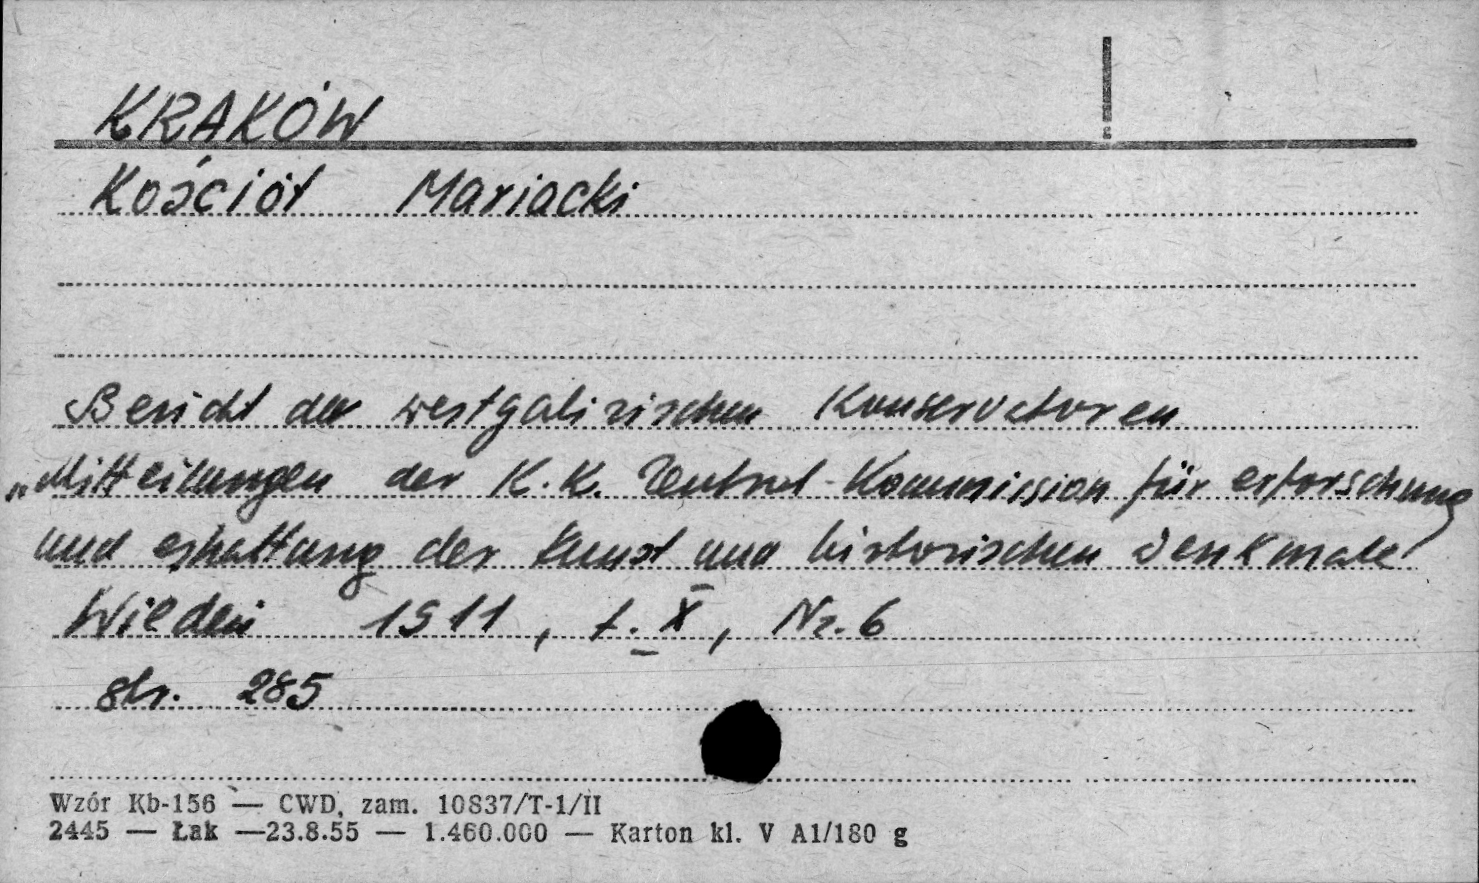 KRAKÓW
Kościół Mariacki
Bericht der westgalizischen Konservatoren
„Mitteilungen der K.K. Zentral-Kommission für erforschung
und erhaltung der Kunst und historischen Denkmale"
Wiedeń 1911, t. X, Nr. 6
str. 285
Wzór Kb-156 — CWD, zam. 10837/T-1/II
2445 — Łak —23.8.55 — 1.460.000 — Karton kl. V A1/180 g